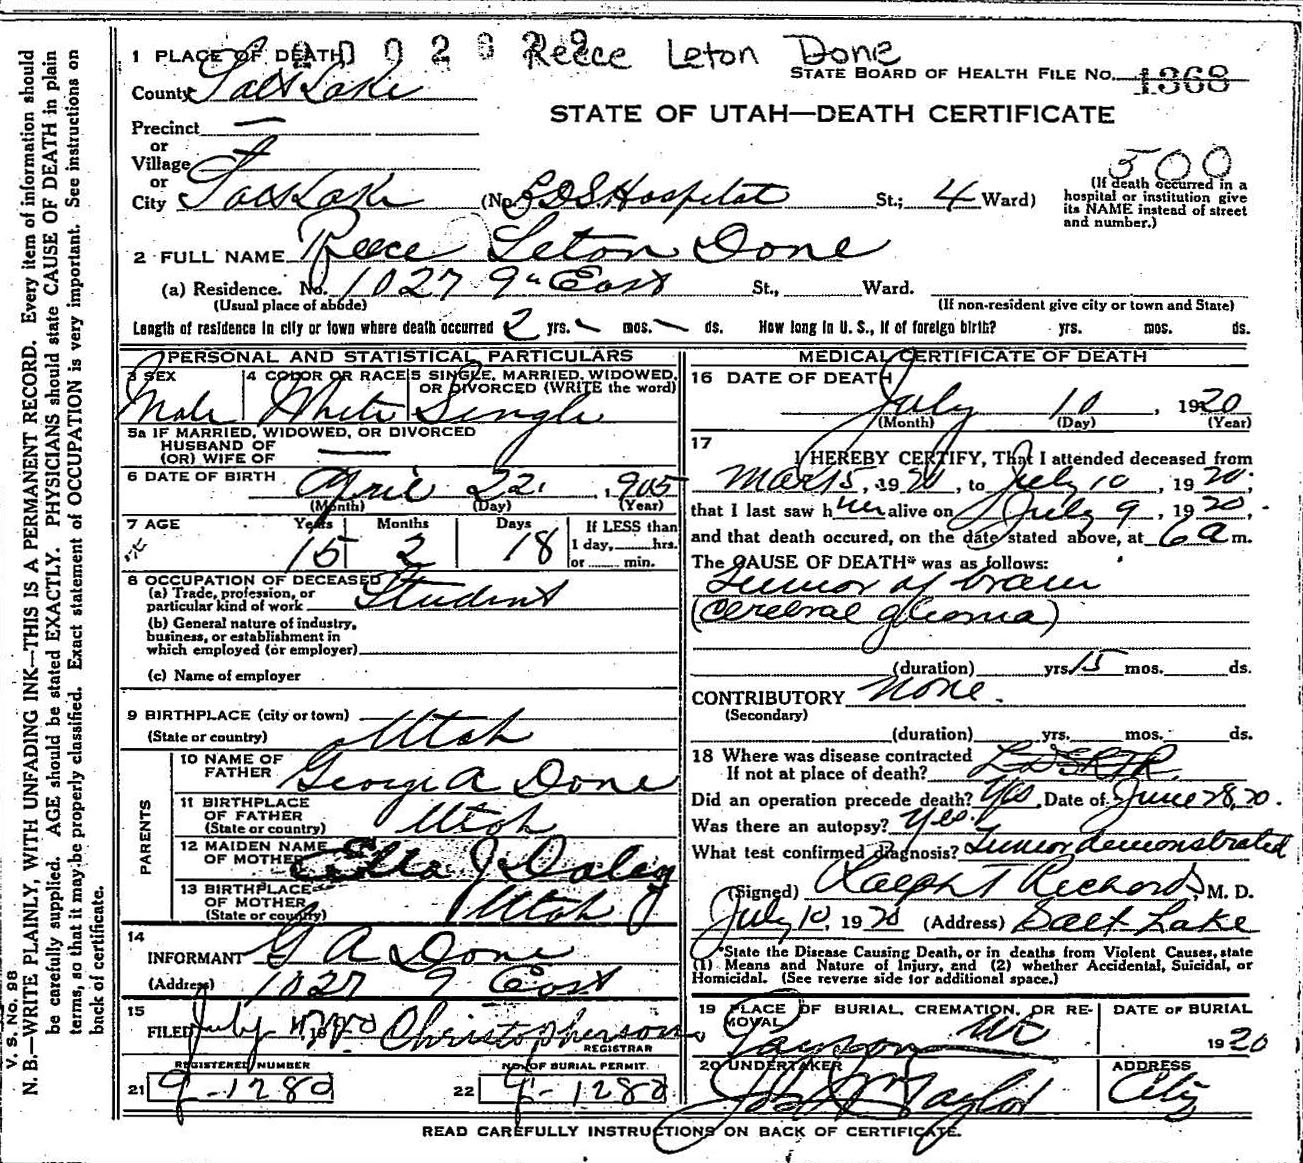 Reece Leton Done
1 PLACE OF DEATH
STATE BOARD OF HEALTH FILE No. 1368
County Salt Lake
STATE OF UTAH—DEATH CERTIFICATE
Precinct —
or
Village
or
City Salt Lake (No. L D S Hospital St.; 4 Ward)
500
(If death occurred in a
hospital or institution give
its NAME instead of street
and number.)
2 FULL NAME Reece Leton Done
(a) Residence. No. 1027 9th East St., Ward.
(Usual place of abode) (If non-resident give city or town and State)
Length of residence in city or town where death occurred 2 yrs. mos. ds. How long in U. S., if of foreign birth? yrs. mos. ds.
PERSONAL AND STATISTICAL PARTICULARS
3 SEX 4 COLOR OR RACE 5 SINGLE, MARRIED, WIDOWED,
OR DIVORCED (WRITE the word)
Male White Single
5a IF MARRIED, WIDOWED, OR DIVORCED
HUSBAND OF
(OR) WIFE OF —
6 DATE OF BIRTH April 22, 1905
(Month) (Day) (Year)
7 AGE Years Months Days If LESS than
15 2 18 1 day, hrs.
or min.
8 OCCUPATION OF DECEASED
(a) Trade, profession, or
particular kind of work Student
(b) General nature of industry,
business, or establishment in
which employed (or employer)
(c) Name of employer
9 BIRTHPLACE (city or town)
(State or country) Utah
PARENTS
10 NAME OF
FATHER George A Done
11 BIRTHPLACE
OF FATHER
(State or country) Utah
12 MAIDEN NAME
OF MOTHER Etta J Daley
13 BIRTHPLACE
OF MOTHER
(State or country) Utah
14
INFORMANT G A Done
(Address) 1027 9 East
15
FILED July Christopherson
REGISTRAR
REGISTERED NUMBER NO. OF BURIAL PERMIT.
21 9-1280 22 9-1280
MEDICAL CERTIFICATE OF DEATH
16 DATE OF DEATH
July 10, 1920
(Month) (Day) (Year)
17
I HEREBY CERTIFY, That I attended deceased from
Mar 15, 1920, to July 10, 1920,
that I last saw him alive on July 9, 1920,
and that death occured, on the date stated above, at 6 a m.
The CAUSE OF DEATH* was as follows:
Tumor of brain
(cerebral glioma)
(duration) yrs. 15 mos. ds.
CONTRIBUTORY None.
(Secondary)
(duration) yrs. mos. ds.
18 Where was disease contracted
If not at place of death?
Did an operation precede death? Yes Date of June 28, 20.
Was there an autopsy? Yes.
What test confirmed diagnosis? Tumor demonstrated
(Signed) Ralph T Richards, M. D.
July 10, 1920 (Address) Salt Lake
*State the Disease Causing Death, or in deaths from Violent Causes, state
(1) Means and Nature of Injury, and (2) whether Accidental, Suicidal, or
Homicidal. (See reverse side for additional space.)
19 PLACE OF BURIAL, CREMATION, OR RE-
MOVAL DATE OF BURIAL
Payson Ut 1920
20 UNDERTAKER ADDRESS
Taylor City
READ CAREFULLY INSTRUCTIONS ON BACK OF CERTIFICATE.
V. S. No. 98
N. B.—WRITE PLAINLY, WITH UNFADING INK—THIS IS A PERMANENT RECORD. Every item of information should
be carefully supplied. AGE should be stated EXACTLY. PHYSICIANS should state CAUSE OF DEATH in plain
terms, so that it may be properly classified. Exact statement of OCCUPATION is very important. See instructions on
back of certificate.